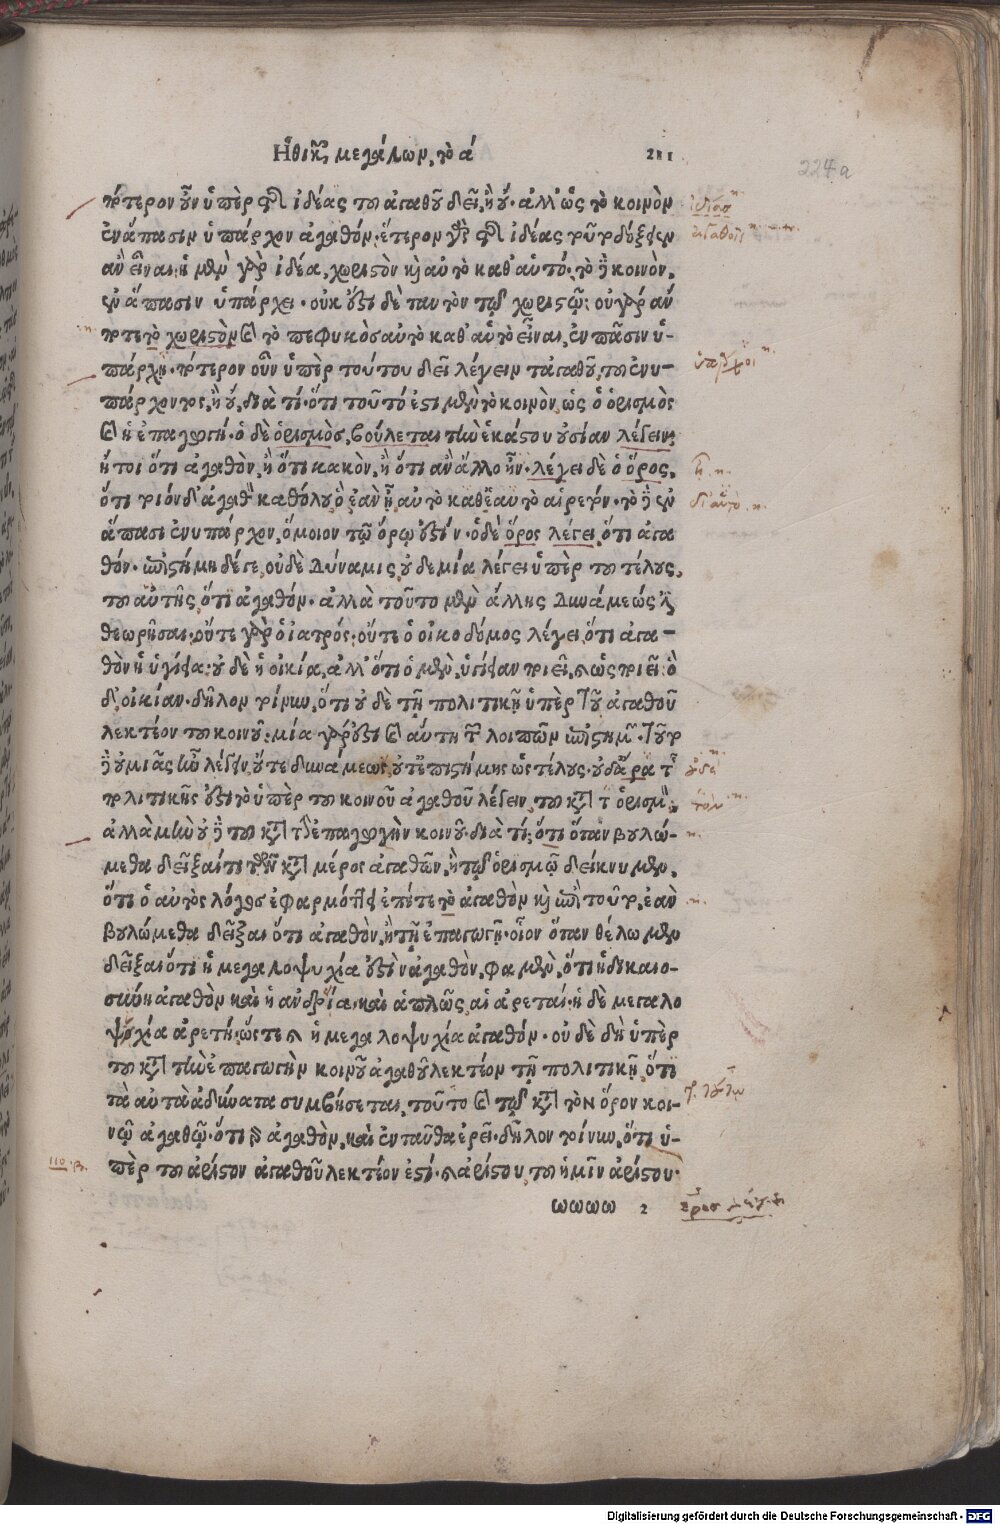 Ἠθικῶν μεγάλων, τὸ ά 211
224a
πότερον οὖν ὑπὲρ τῆς ἰδέας τοῦ ἀγαθοῦ δεῖ, ἢ οὔ· ἀλλ' ὡς τὸ κοινὸν
ἐν ἅπασιν ὑπάρχον ἀγαθόν; ἕτερον γὰρ τῆς ἰδέας τοῦτο δόξειεν
ἂν εἶναι· ἡ μὲν γὰρ ἰδέα, χωριστὸν καὶ αὐτὸ καθ' αὑτό· τὸ δὲ κοινὸν,
ἐν ἅπασιν ὑπάρχει· οὐκ ἔστι δὲ ταυτὸν τῷ χωριστῷ· οὐ γὰρ ἄν
ποτε τὸ χωριστὸν καὶ τὸ πεφυκὸς αὐτὸ καθ' αὑτὸ εἶναι, ἐν πᾶσιν ὑ-
πάρχῃ· πότερον οὖν ὑπὲρ τούτου δεῖ λέγειν τἀγαθοῦ, τοῦ ἐνυ-
πάρχοντος, ἢ οὔ, διὰ τί· ὅτι τοῦτό ἐστι μὲν τὸ κοινὸν, ὡς ὁ ὁρισμὸς
καὶ ἡ ἐπαγωγή· ὁ δὲ ὁρισμὸς, βούλεται τὴν ἑκάστου οὐσίαν λέγειν;
ἤτοι ὅτι ἀγαθὸν, ἢ ὅτι κακὸν, ἢ ὅτι ἂν ἄλλο ἦν· λέγει δὲ ὁ ὅρος,
ὅτι τοιόνδ' ἀγαθὸν καθόλου, ὃ ἐὰν ᾖ αὐτὸ καθ' ἑαυτὸ αἱρετόν· τὸ δὲ ἐν
ἅπασι ἐνυπάρχον, ὅμοιον τῷ ὅρῳ ἐστίν· ὁ δὲ ὅρος λέγει, ὅτι ἀγα
θόν· ἐπιστήμη δέ γε, οὐδὲ δύναμις οὐδεμία λέγει ὑπὲρ τοῦ τέλους,
τοῦ αὑτῆς, ὅτι ἀγαθόν· ἀλλὰ τοῦτο μὲν ἄλλης δυνάμεώς ἐστι
θεωρῆσαι· οὔτε γὰρ ὁ ἰατρός· οὔτε ὁ οἰκοδόμος λέγει, ὅτι ἀγα-
θὸν ἡ ὑγίεια· οὐδὲ ἡ οἰκία, ἀλλ' ὅτι ὁ μὲν, ὑγίειαν ποιεῖ, καὶ ὡς ποιεῖ· ὁ
δ' οἰκίαν· δῆλον τοίνυν, ὅτι οὐδὲ τῇ πολιτικῇ ὑπὲρ τοῦ ἀγαθοῦ
λεκτέον τοῦ κοινοῦ: μία γάρ ἐστι καὶ αὕτη τῶν λοιπῶν ἐπιστημῶν· τοῦτο
δὲ οὐ μιᾶς ἦν λέγειν, οὔτε δυνάμεως, οὔτ' ἐπιστήμης ὡς τέλους· οὐδ' ἄρα τῆς
πολιτικῆς ἐστι τὸ ὑπὲρ τοῦ κοινοῦ ἀγαθοῦ λέγειν, τοῦ κατὰ τὸν ὁρισμόν;
ἀλλὰ μὴν οὐδὲ τοῦ κατὰ τὴν ἐπαγωγὴν κοινοῦ· διὰ τί; ὅτι ὅταν βουλώ-
μεθα δεῖξαί τι τῶν κατὰ μέρος ἀγαθῶν, ἢ τῷ ὁρισμῷ δείκνυμεν,
ὅτι ὁ αὐτὸς λόγος ἐφαρμόττει ἐπί τε τὸ ἀγαθὸν καὶ ἐπὶ τοῦτο, ἐὰν
βουλώμεθα δεῖξαι ὅτι ἀγαθὸν, ἢ τῇ ἐπαγωγῇ· οἷον ὅταν θέλωμεν
δεῖξαι ὅτι ἡ μεγαλοψυχία ἐστὶν ἀγαθὸν, φαμὲν, ὅτι ἡ δικαιο-
σύνη ἀγαθὸν καὶ ἡ ἀνδρία, καὶ ἁπλῶς αἱ ἀρεταί· ἡ δὲ μεγαλο
ψυχία ἀρετή· ὥστε καὶ ἡ μεγαλοψυχία ἀγαθόν· οὐδὲ δὴ ὑπὲρ
τοῦ κατὰ τὴν ἐπαγωγὴν κοινοῦ ἀγαθοῦ λεκτέον τῇ πολιτικῇ, ὅτι
τὰ αὐτὰ ἀδύνατα συμβήσεται, τοῦτο καὶ τῷ κατὰ τὸν ὅρον κοι-
νῷ ἀγαθῷ· ὅτι γὰρ ἀγαθὸν, καὶ ἐνταῦθα ἐρεῖ· δῆλον τοίνυν, ὅτι ὑ-
πὲρ τοῦ ἀρίστου ἀγαθοῦ λεκτέον ἐστί· καὶ ἀρίστου, τοῦ ἡμῖν ἀρίστου·
ωωωω 2
Digitalisierung gefördert durch die Deutsche Forschungsgemeinschaft - DFG